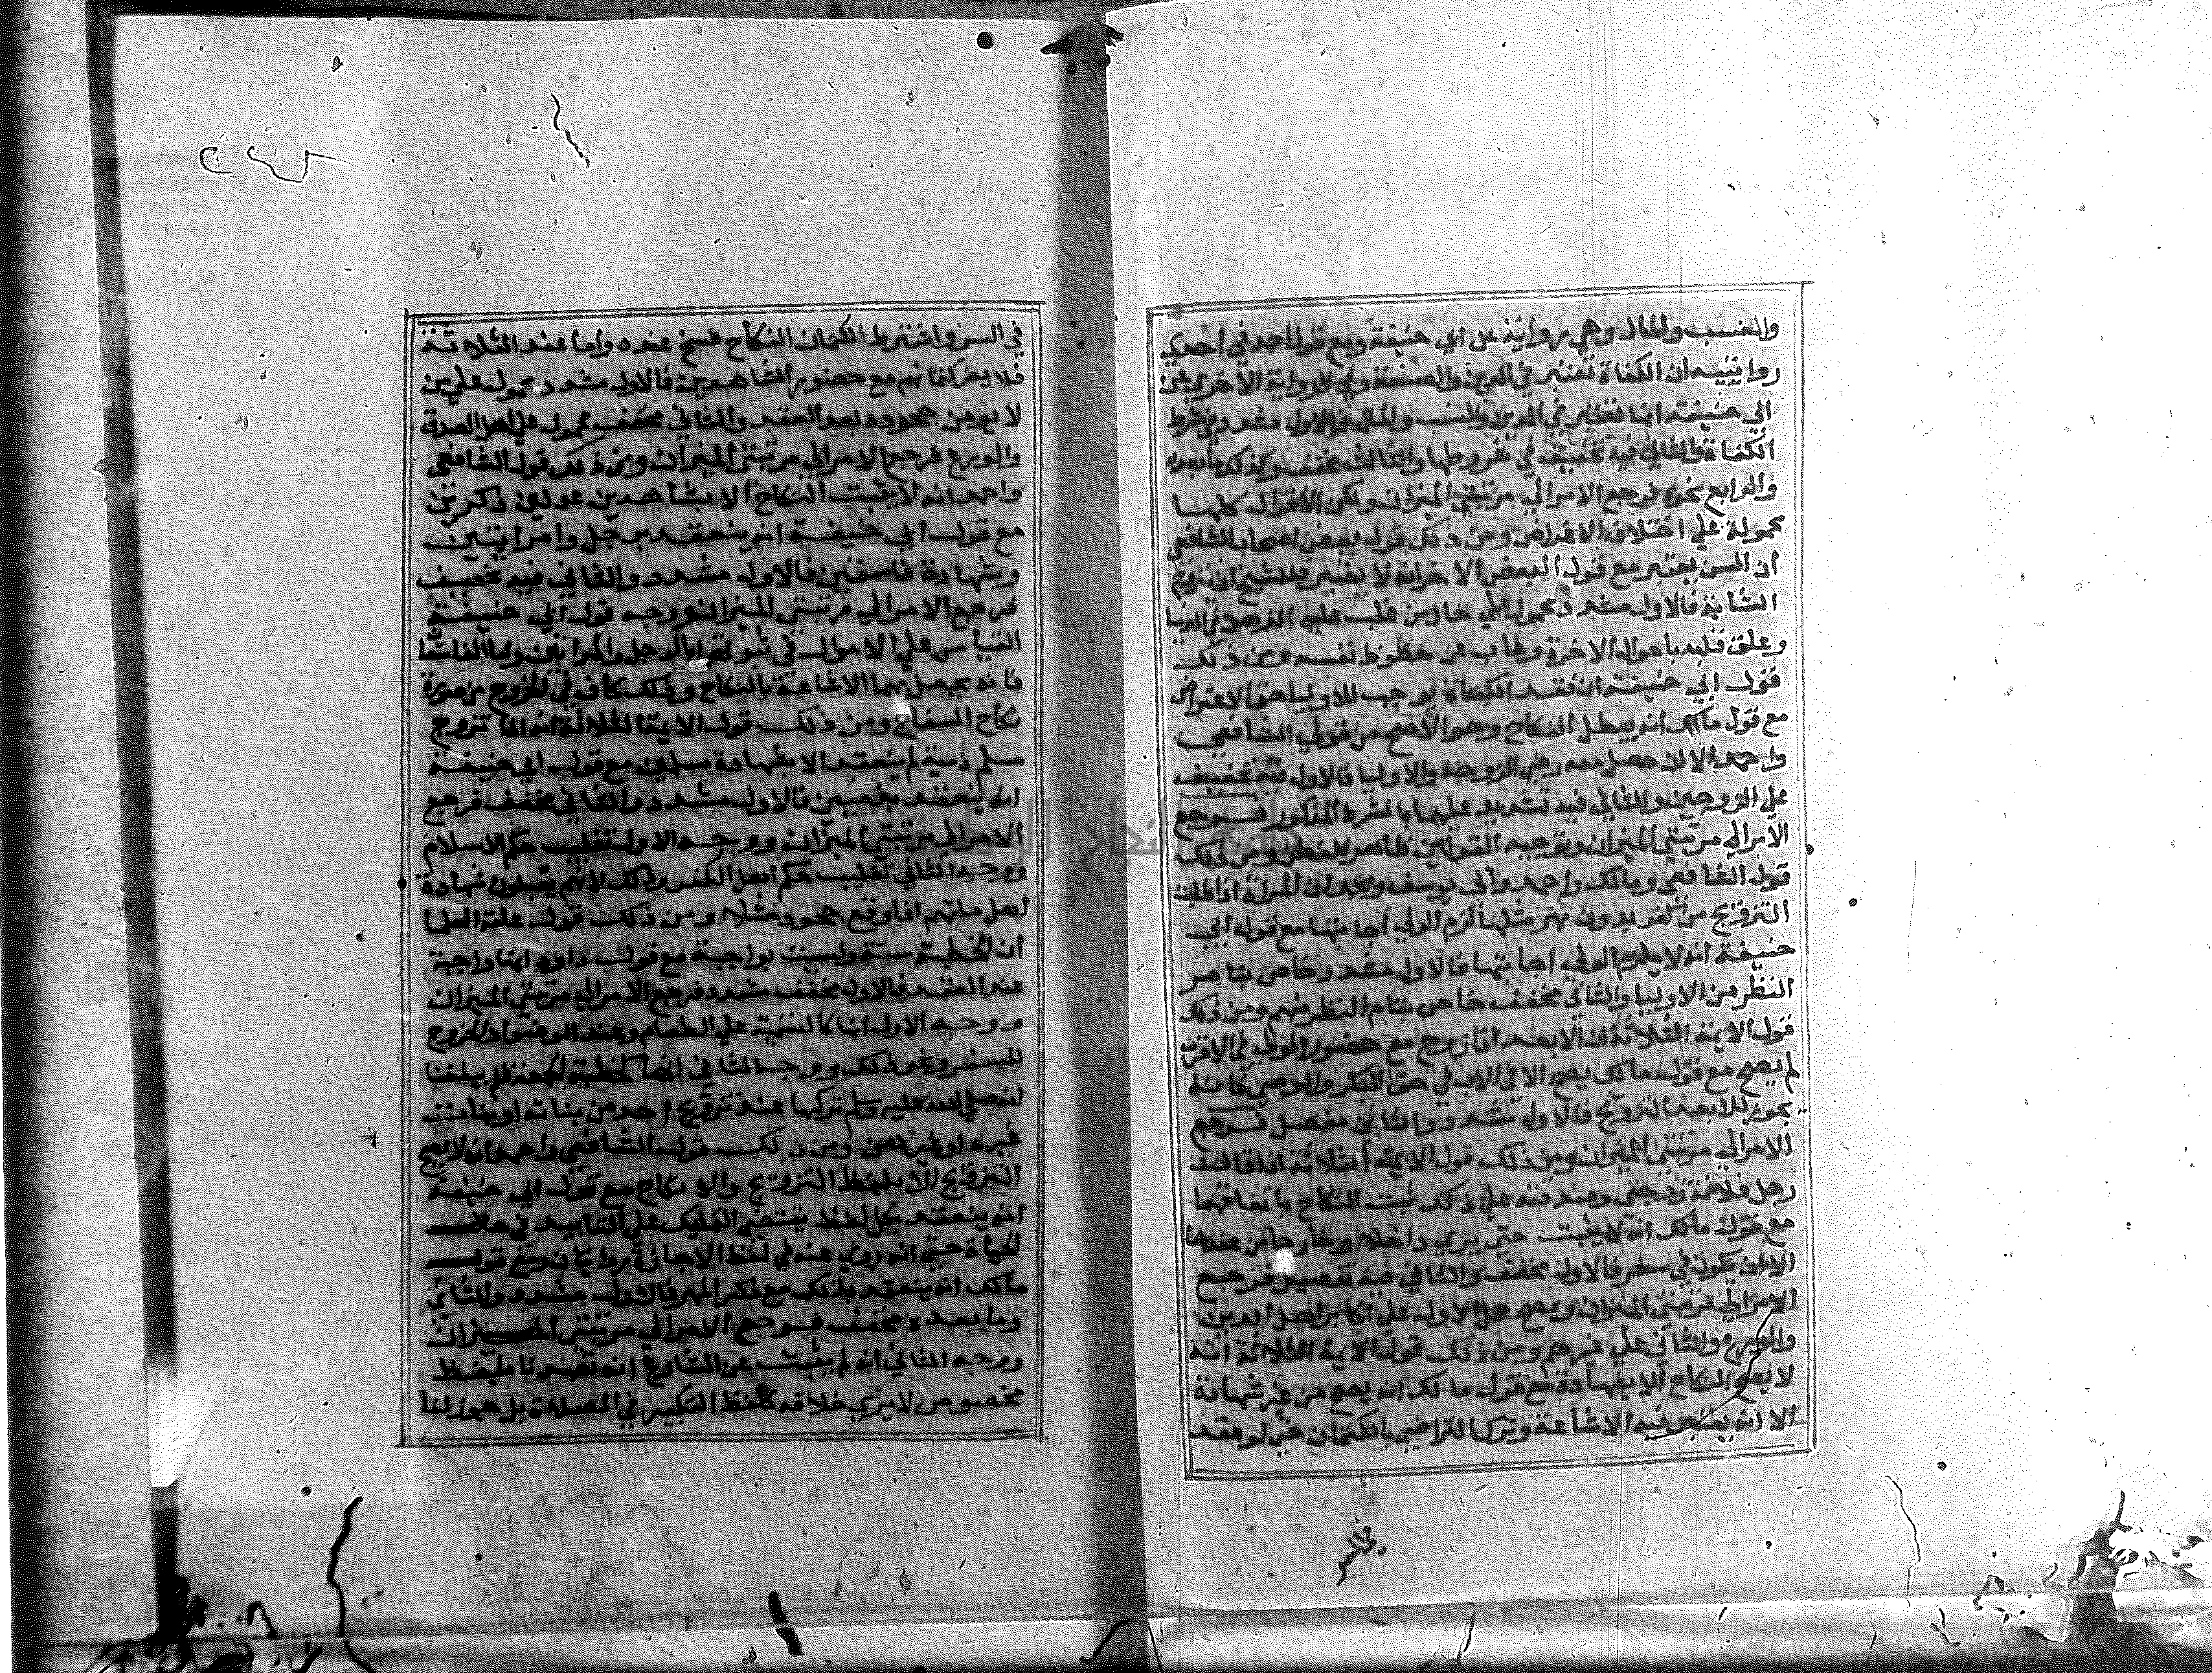 والنسب والمال وهي رواية عن ابي حنيفة ومع قول احمد في احدي
روايتيه ان الكفاة تعتبر في الدين والصنعة وفي الرواية الاخري عن
ابي حنيفة انها تعتبر في الدين والنسب والمال فالاول مشدد في شرط
الكفاة والثاني فيه تخفيف في شروطها والثالث مخفف وكذلك ما بعده
والرابع نحوه فرجع الامر الي مرتبتي الميزان ولكن الاقوال كلها
محمولة علي اختلاف الاغراض ومن ذلك قول بعض اصحاب الشافعي
ان السن يعتبر مع قول البعض الاخر انه لا يعتبر فللشيخ ان يتزوج
الشابة فالاول مشدد محمول علي حال من غلب عليه الزهد في الدنيا
وعلق قلبه باحوال الاخرة وغاب عن حظوظ نفسه ومن ذلك
قول ابي حنيفة ان فقد الكفاة يوجب للاوليا حق الاعتراض
مع قول مالك انه يبطل النكاح وهو الاصح من قولي الشافعي
واحمد الا ان حصل معه رضي الزوجة والاوليا فالاول فيه تخفيف
علي الزوجين والثاني فيه تشديد عليهما بالشرط المذكور فرجع
الامر الي مرتبتي الميزان وتوجيه القولين ظاهر للفطن ومن ذلك
قول الشافعي ومالك واحمد وابي يوسف ومحمد ان المراة اذا طلبت
التزويج من كفو بدون مهر مثلها لزم الولي اجابتها مع قول ابي
حنيفة انه لا يلزم الولي اجابتها فالاول مشدد وخاص بقاصر
النظر من الاوليا والثاني مخفف خاص بتام النظر منهم ومن ذلك
قول الايمة الثلاثة ان الابعد اذا زوج مع حضور الولي الاقرب
لم يصح مع قول مالك يصح الا في الاب في حق البكر والوصي فانه
يجوز للابعد التزويج فالاول مشدد والثاني مفصل فرجع
الامر الي مرتبتي الميزان ومن ذلك قول الايمة الثلاثة اذا قالت
رجل فلانة زوجتي وصدقته علي ذلك ثبت النكاح باتفاقهما
مع قول مالك انه لا يثبت حتي يري داخلا وخارجا من عندها
الا ان يكون في سفر فالاول مخفف والثاني فيه تفصيل فرجع
الامر الي مرتبتي الميزان ويصح حمل الاول علي اكابر اهل الدين
والورع والثاني علي غيرهم ومن ذلك قول الايمة الثلاثة انه
لا يصح النكاح الا بشهادة مع قول مالك انه يصح من غير شهادة
الا انه يعتبر فيه الاشاعة وترك التراضي بالكتمان حتي لو عقد
في السر
في السر واشترط الكتمان النكاح فسخ عنده واما عند الثلاثة
فلا يضر كتمانهم مع حضور الشاهدين فالاول مشدد محمول علي من
لا يومن جحوده بعد العقد والثاني مخفف محمول علي اهل الصدق
والورع فرجع الامر الي مرتبتي الميزان ومن ذلك قول الشافعي
واحمد انه لا يثبت النكاح الا بشاهدين عدلين ذكرين
مع قول ابي حنيفة انه ينعقد برجل وامراتين
وبشهادة فاسقين فالاول مشدد والثاني فيه تخفيف
فرجع الامر الي مرتبتي الميزان ووجه قول ابي حنيفة
القياس علي الاموال في ثبوتها بالرجل والمراتين واما الفاسقا
فانه يحصل بهما الاشاعة بالنكاح وذلك كاف في الخروج من صورة
نكاح السفاح ومن ذلك قول الاية الثلاثة انه اذا تزوج
مسلم ذمية لم ينعقد الا بشهادة مسلمين مع قول ابي حنيفة
انه ينعقد بذميين فالاول مشدد والثاني مخفف فرجع
الامر الي مرتبتي الميزان ووجه الاول تغليب حكم الاسلام
ووجه الثاني تغليب حكم اهل الكفر وذلك لانهم يقبلون شهادة
اهل ملتهم اذا وقع جحود مثلا ومن ذلك قول عامة العلما
ان الخطبة سنة وليست بواجبة مع قول داود انها واجبة
عند العقد فالاول مخفف مشدد فرجع الامر الي مرتبتي الميزان
ووجه الاول انها كالتسمية علي الطعام وعند الوضوء والخروج
للسفر ونحو ذلك ووجه الثاني انها كخطبة الجمعة فلم يبلغنا
انه صلي الله عليه وسلم تركها عند تزويج احد من بناته او بنات
غيره او غيرهن ومن ذلك قول الشافعي واحمد انه لا يصح
التزويج الا بلفظ التزويج والا نكاح مع قول ابي حنيفة
انه ينعقد بكل لفظ يقتضي التمليك علي التابيد في حال
الحياة حتي انه روي عنه في لفظ الاجارة روايتان ومع قول
مالك انه ينعقد بذلك مع ذكر المهر فالاول مشدد والثاني
وما بعده مخفف فرجع الامر الي مرتبتي الميزان
ووجه الثاني انه لم يثبت عن الشارع انه تعبدنا بلفظ
مخصوص لا يجزي خلافه كلفظ التكبير في الصلاة بل جوز لنا